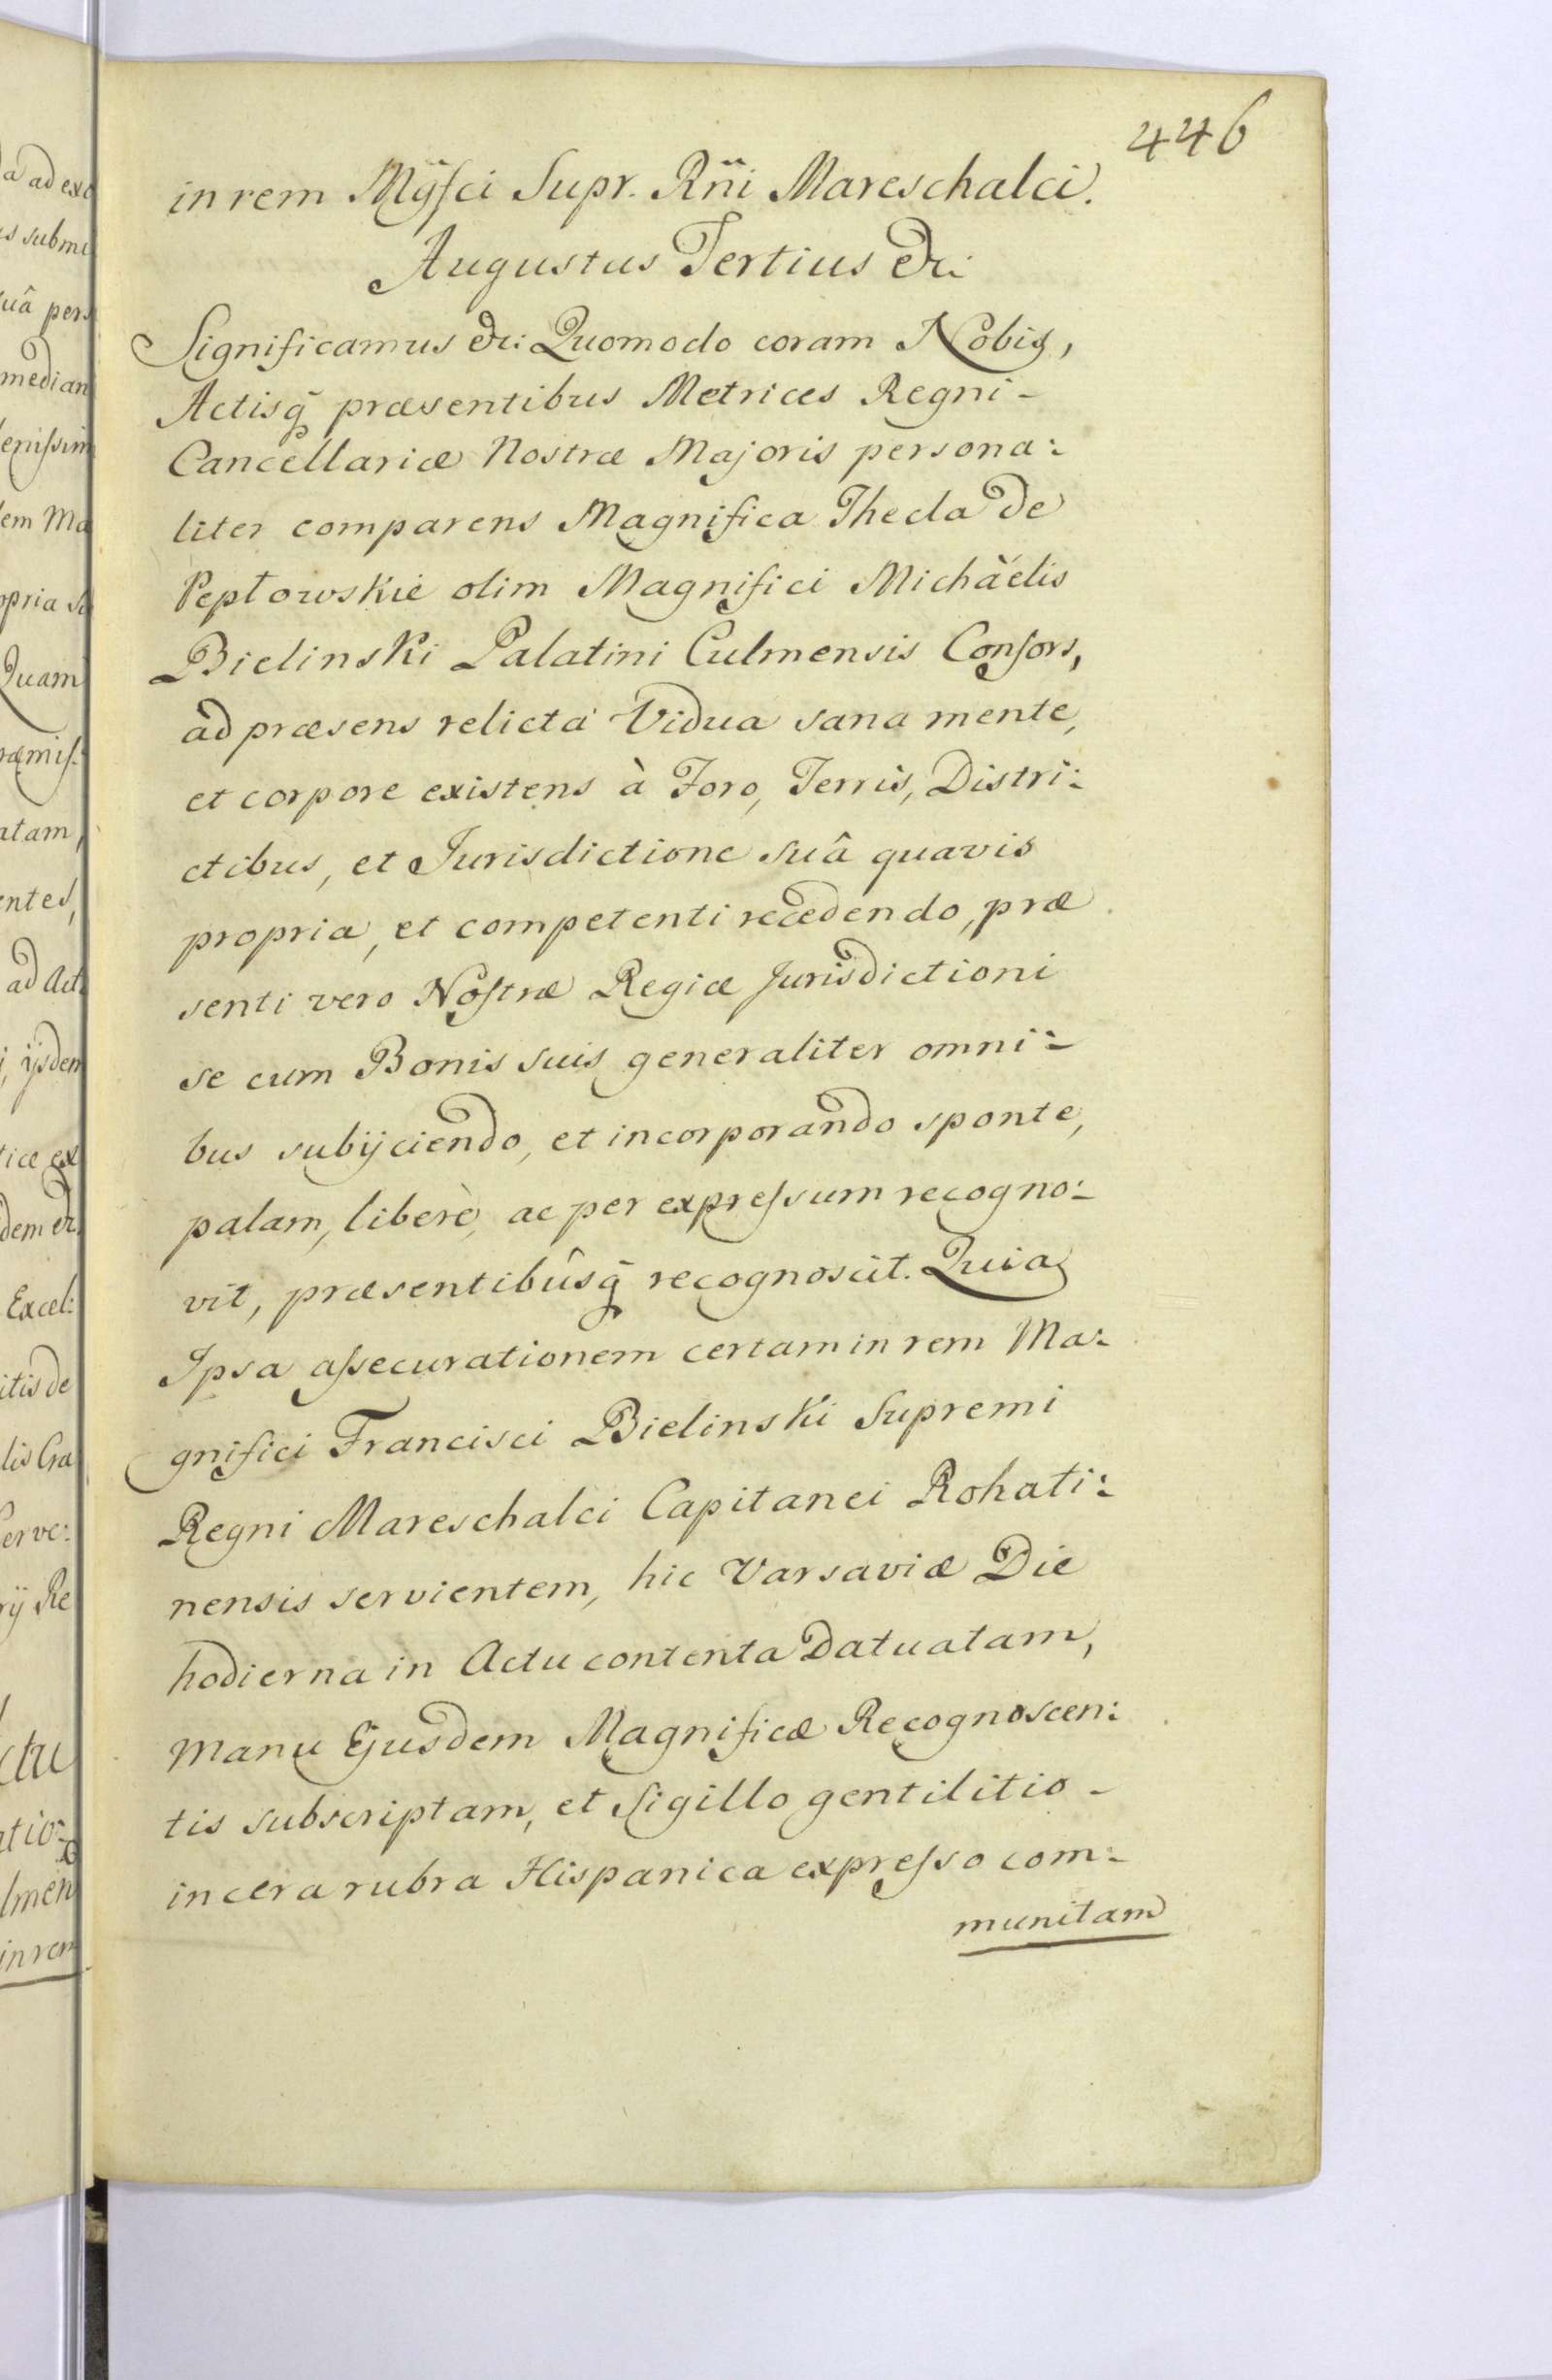 446
in rem Mg̈fci Supr. Rn̈i Mareschalci.
Augustus Tertius &c:
Significamus &c: Quomodo coram Nobis,
Actisq̃ præsentibus Metrices Regni-
Cancellariæ Nostræ Majoris persona:
liter comparens Magnifica Thecla de
Pepłowskie olim Magnifici Michäelis
Bielinski Palatini Culmensis Consors,
ad præsens relicta Vidua sana mente,
et corpore existens à Foro, Terris, Distri:
ctibus, et Jurisdictione suâ quavis
propria, et competenti recedendo, præ
senti vero Nostræ Regiæ Jurisdictioni
se cum Bonis suis generaliter omni:
bus subijciendo, et incorporando sponte,
palam, liberè, ac per expressum recogno:
vit, præsentibûsq̃ recognoscit. Quia
Ipsa assecurationem certam in rem Ma:
gnifici Francisci Bielinski Supremi
Regni Mareschalci Capitanei Rohati:
nensis servientem, hic Varsaviæ Die
hodierna in Actu contenta Datuatam,
Manu Ejusdem Magnificæ Recognoscen:
tis subscriptam, et Sigillo gentilitio-
in cera rubra Hispanica expresso com:
munitam